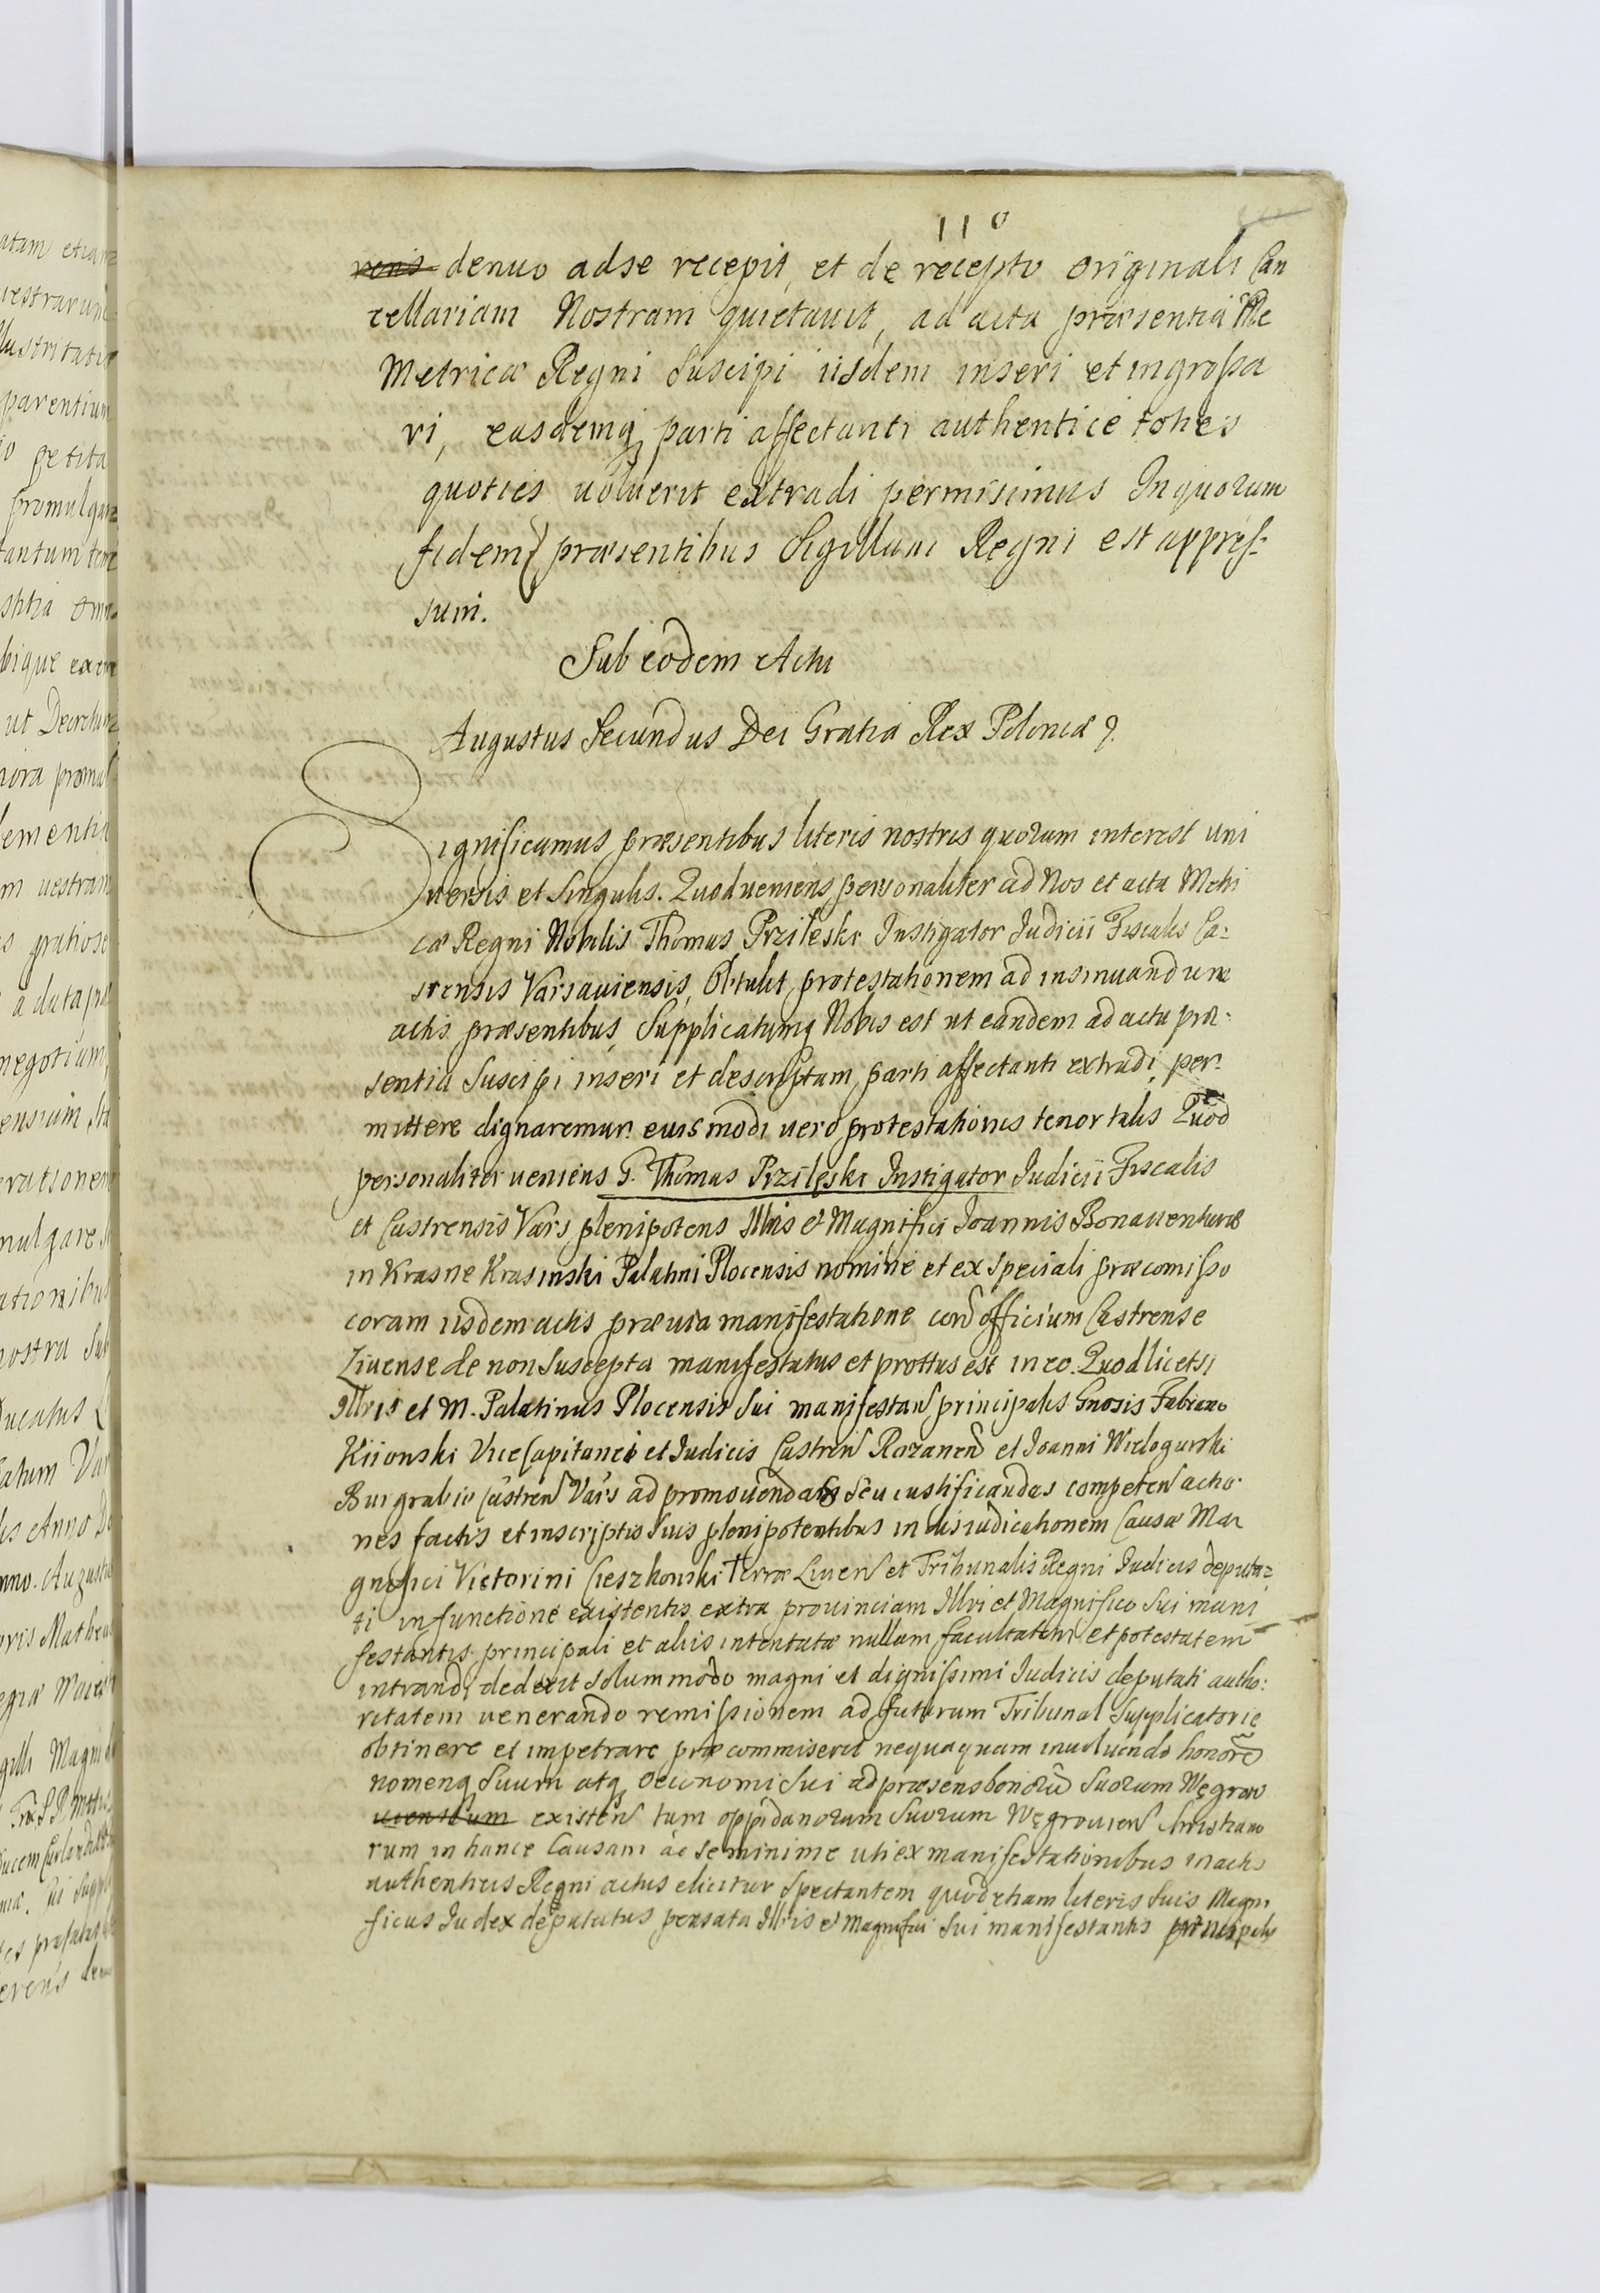 110
rens denuo ad se recepit, et de recepto originali Can
cellariam Nostram quietauit, ad acta præsentia Me
Metricæ Regni suscipi iisdem inseri et ingrossa
ri, easdemq parti affectanti authentice toties
quoties uoluerit extradi permisimus In quorum
fidem præsentibus Sigillum Regni est appres:
sum.
Sub eodem Actu
Augustus Secundus Dei Gratia Rex Poloniæ
Significamus præsentibus literis nostris quorum interest uni
uersis et singulis. Quod ueniens personaliter ad Nos et acta Metri
cæ Regni Nobilis Thomas Przileski Instigator Judicii Fiscalis Ca:
strensis Varsauiensis, Obtulit protestationem ad insinuandum
actis præsentibus, Supplicatumq Nobis est ut eandem ad acta præ:
sentia suscipi inseri et descriptam parti affectanti extradi, per:
mittere dignaremur. euismodi uero protestationis tenor talis Quod
personaliter ueniens G. Thomas Przilęski Instigator Judicii Fiscalis
et Castrensis Vars plenipotens Illris et Magnifici Joannis Bonauenturæ
in Krasne Krasinski Palatini Plocensis nomine et ex speciali præcomisso
coram iisdem actis præuia manifestatione cora officium Castrense
Liuense de non suscepta manifestatus et prottus est in eo. Quod licet
Illris et M. Palatinus Plocensis sui manifestan principalis Gnosis Fabiano
Kiionski ViceCapitaneo et Judicis Castren Rozanen et Joanni Wielogurski
Burgrabio Castren Vars ad promouendas seu iustificandas competen actio
nes factis et inscriptis suis plenipotentibus in diiudicationem Causæ Ma
gnifici Victorini Cieszkowski Terræ Liuen et Tribunalis Regni Judicis deputa:
ti in functione existentis extra prouinciam Illri et Magnifico sui mani
festantis principali et aliis intentatæ nullam facultatem et potestatem
intrandi dederit solummodo magni et dignissimi Judicis deputati autho:
ritatem uenerando remissionem ad futurum Tribunal supplicatorie
obtinere et impetrare præcommiserit nequaquam inuoluendo honore
nomenq suum atq oeconomi sui ad præsens bonoru suorum Węgrow
uiensium existen tum oppidanorum suorum Węgrouien christiano
rum in hance Causam ac se minime uti ex manifestationibus in actis
authenticis Regni actus elicitur spectantem quod etiam literis suis Magni
ficus Judex deputatus pensata Illris et Magnifici sui manifestantis principalis